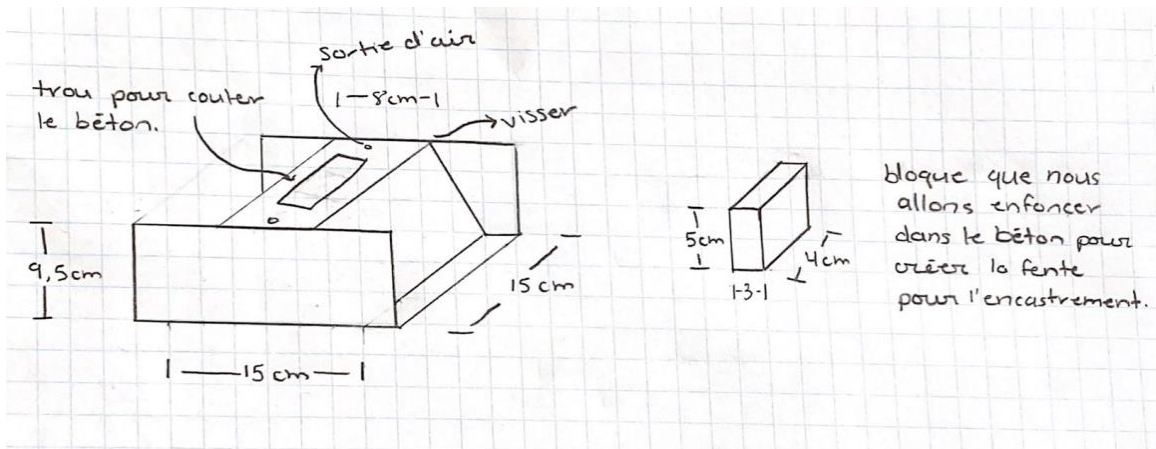 sortie d'air
trou pour couler
le béton.
1-8cm-1
visser
9,5cm
15 cm
1-15 cm-1
5cm
4cm
1-3-1
bloque que nous
allons enfoncer
dans le béton pour
créer la fente
pour l'encastrement.